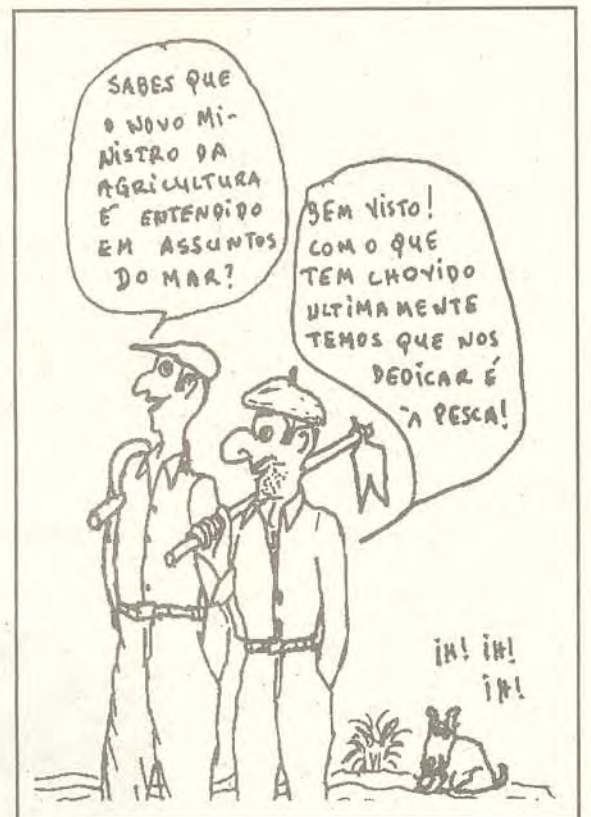 SABES QUE
O NOVO MI-
NISTRO DA
AGRICULTURA
É ENTENDIDO
EM ASSUNTOS
DO MAR?
BEM VISTO!
COM O QUE
TEM CHOVIDO
ULTIMAMENTE
TEMOS QUE NOS
DEDICAR É
À PESCA!
IH! IH!
IH!